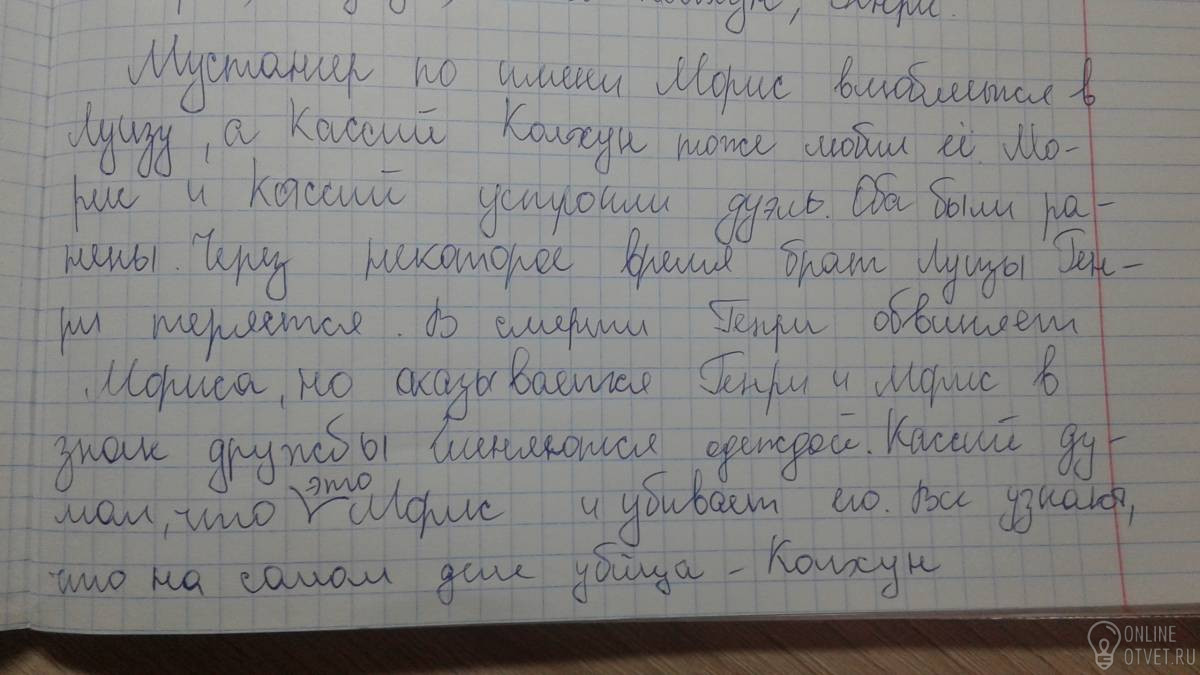 Генри.
Мустангер по имени Морис влюбляется в
Луизу, а Кассий Колхун тоже любил её. Мо-
рис и Кассий устроили дуэль. Оба были ра-
нены. Через некоторое время брат Луизы Ген-
ри теряется. В смерти Генри обвиняет
Мориса, но оказывается Генри и Морис в
знак дружбы меняются одеждой. Кассий ду-
мал, что это Морис и убивает его. Все узнают,
что на самом деле убийца - Колхун
ONLINE
OTVET.RU